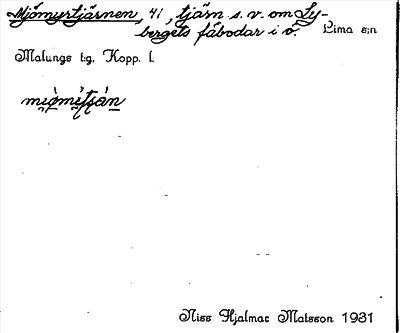 Mjömyrtjärnen, 41, tjärn s.v. om Ly-
bergets fäbodar i ö. Lima s:n
Malungs t:g. Kopp. l.
Niss Hjalmar Matsson 1931